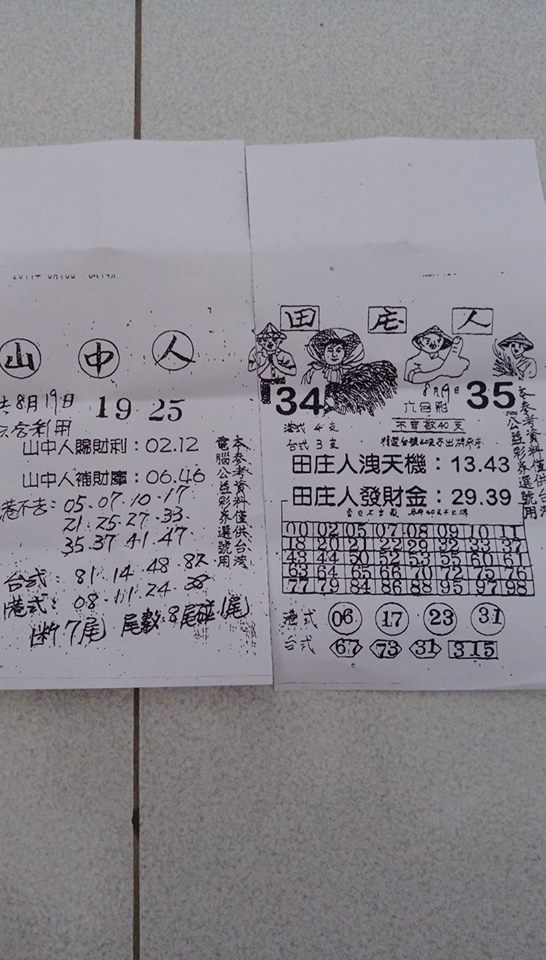 山中人
8月19日 19.25
山中人賜財利：02.12
山中人補財庫：06.46
港不去：05.07.10.17
21.25.27.33
35.37.41.47
台式：81.14.48.82
港式：08.11.24.38
断7尾 尾數：8尾碰1尾
本参考資料僅供台灣
電腦公益彩券選號用
田庄人
34
8月19日
六合彩
35
港式 4支
台式 3支
田庄人洩天機：13.43
田庄人發財金：29.39
00 02 05 07 08 09 10 11
18 20 21 22 29 32 33 37
43 44 50 52 53 55 60 61
63 64 65 66 70 72 75 76
77 79 84 86 88 95 97 98
港式 06 17 23 31
台式 67 73 31 315
本参考資料僅供台灣
電腦公益彩券選號用